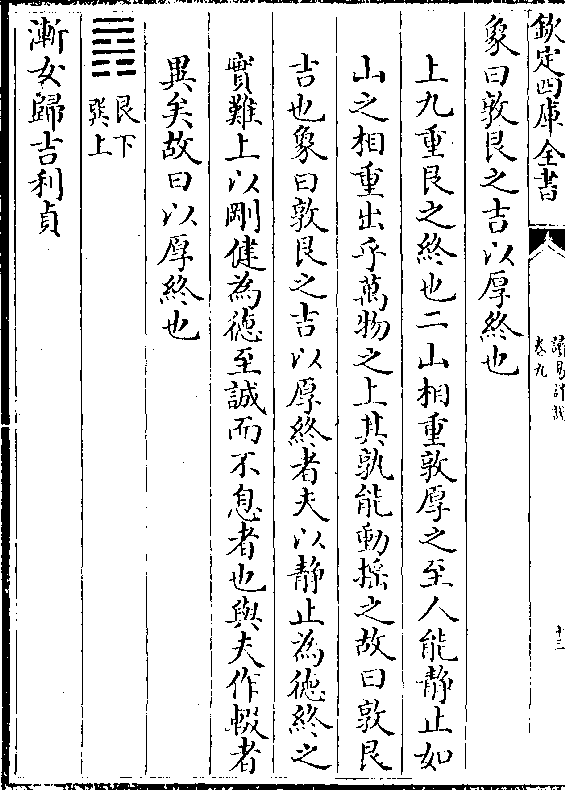 欽定四庫全書
讀易詳說
卷九
十三
象曰敦艮之吉以厚終也
上九重艮之終也二山相重敦厚之至人能靜止如
山之相重出乎萬物之上其孰能動搖之故曰敦艮
吉也象曰敦艮之吉以厚終者夫以靜止為德終之
實難上以剛健為德至誠而不息者也與夫作輟者
異矣故曰以厚終也
艮下
巽上
漸女歸吉利貞